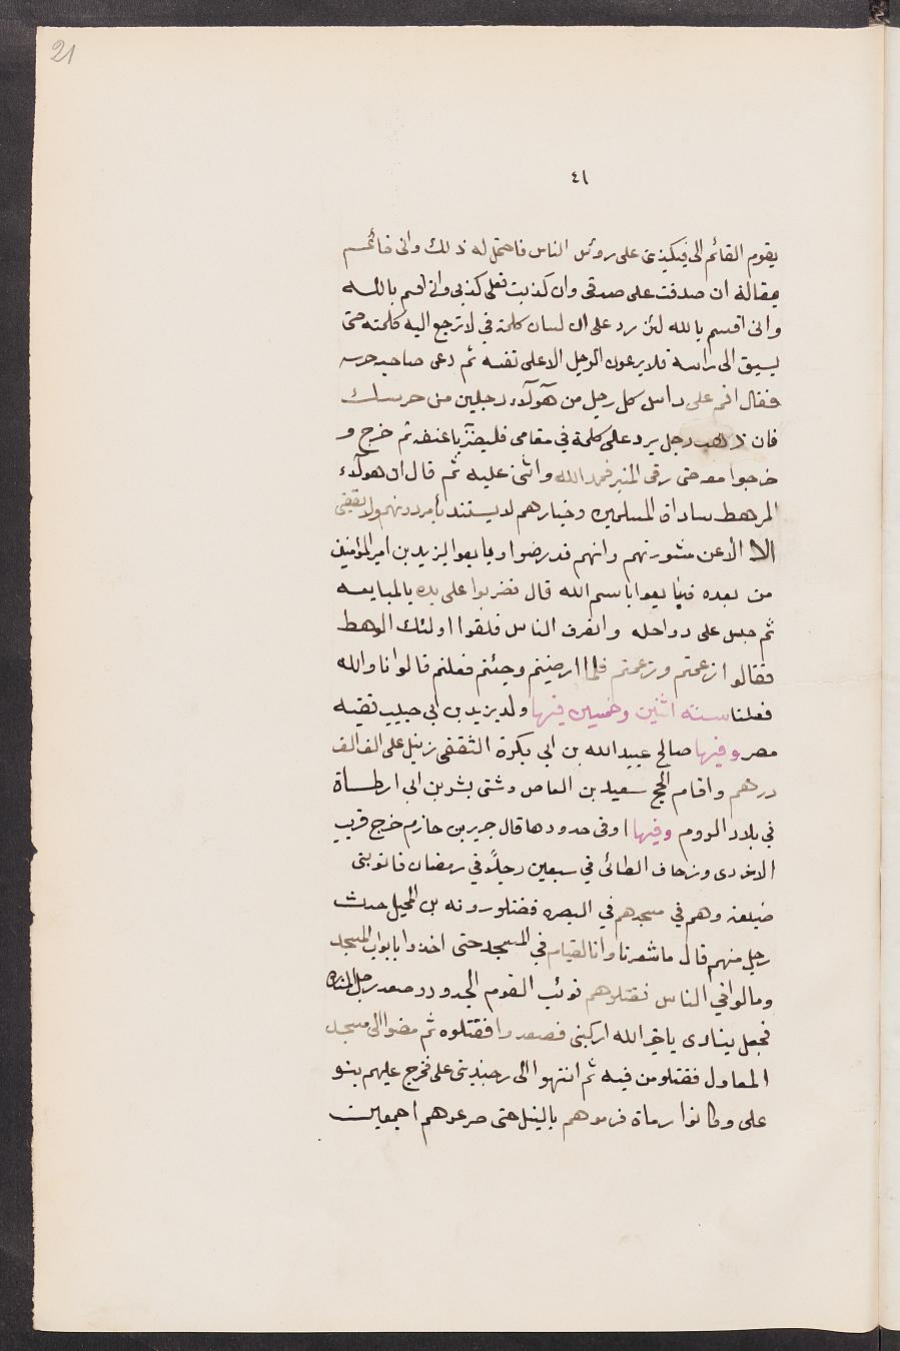 21
٤١
يقوم القائم الى فيكذبنى على روس الناس فاحتمل له ذلك وانى قائم
بمقالة ان صدقت على صدقى وان كذبت فعلى كذبى وانى اقسم بالله
وانى اقسم بالله لئن رد على انسان كلمة فى لا ترجع اليه كلمته حتى
يسبق الى راسه فلا يرعون الرجل الا على نفسه ثم دعى صاحب حرسه
فقال اقم على راس كل رجل من هولاء رجلين من حرسك
فان ذهب رجل يرد على كلمة فى مقامى فليضربا عنقه ثم خرج و
خرجوا معه حتى رقى المنبر فحمد الله واثنى عليه ثم قال ان هولاء
الرهط سادات المسلمين وخيارهم لا يستند بأمر دونهم ولا نقضى
الا الا عن مشورتهم وانهم قد رضوا وبايعوا ليزيد بن امير المؤمنين
من بعده فبايعوا باسم الله قال فضربوا على يده بالمبايعه
ثم جلس على رواحله وانصرف الناس فلقوا اولئك الرهط
فقالوا زعمتم وزعمتم فلما ارضيتم وجئتم فعلتم قالوا انا والله
فعلنا سنة اثنين وخمسين فيها ولد يزيد بن ابى حبيب فقيه
مصر وفيها صالح عبيد الله بن ابى بكرة الثقفى زنبيل على الف الف
درهم واقام الحج سعيد بن العاص وشتى بشر بن ابى ارطاة
فى بلاد الروم وفيها اوفى حدودها قال جرير بن حازم خرج قريب
الازدى وزحاف الطائى فى سبعين رجلاً فى رمضان فاتو بنى
ضبيعه وهم فى مسجدهم فى البصره فقتلو رونه بن المخيل حدث
رجل منهم قال ما شعرنا وانا لقيام فى المسجد حتى اخذوا بابواب المسجد
ومالوا فى الناس فقتلوهم فوثب القوم الجدود وصعد رجل المنارة
فجعل ينادى ياخيل الله اركبى فصعدوا فقتلوه ثم مضوا الى مسجد
المعاول فقتلو من فيه ثم انتهوا الى رحبة بنى على فخرج عليهم بنو
على وكانوا رماة فرموهم بالنبل حتى صرعوهم اجمعين